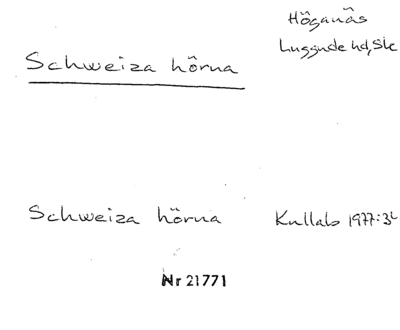 Höganäs
Luggude hd, Sk
Schweiza hörna
Schweiza hörna Kullab 1977:3
Nr 21771